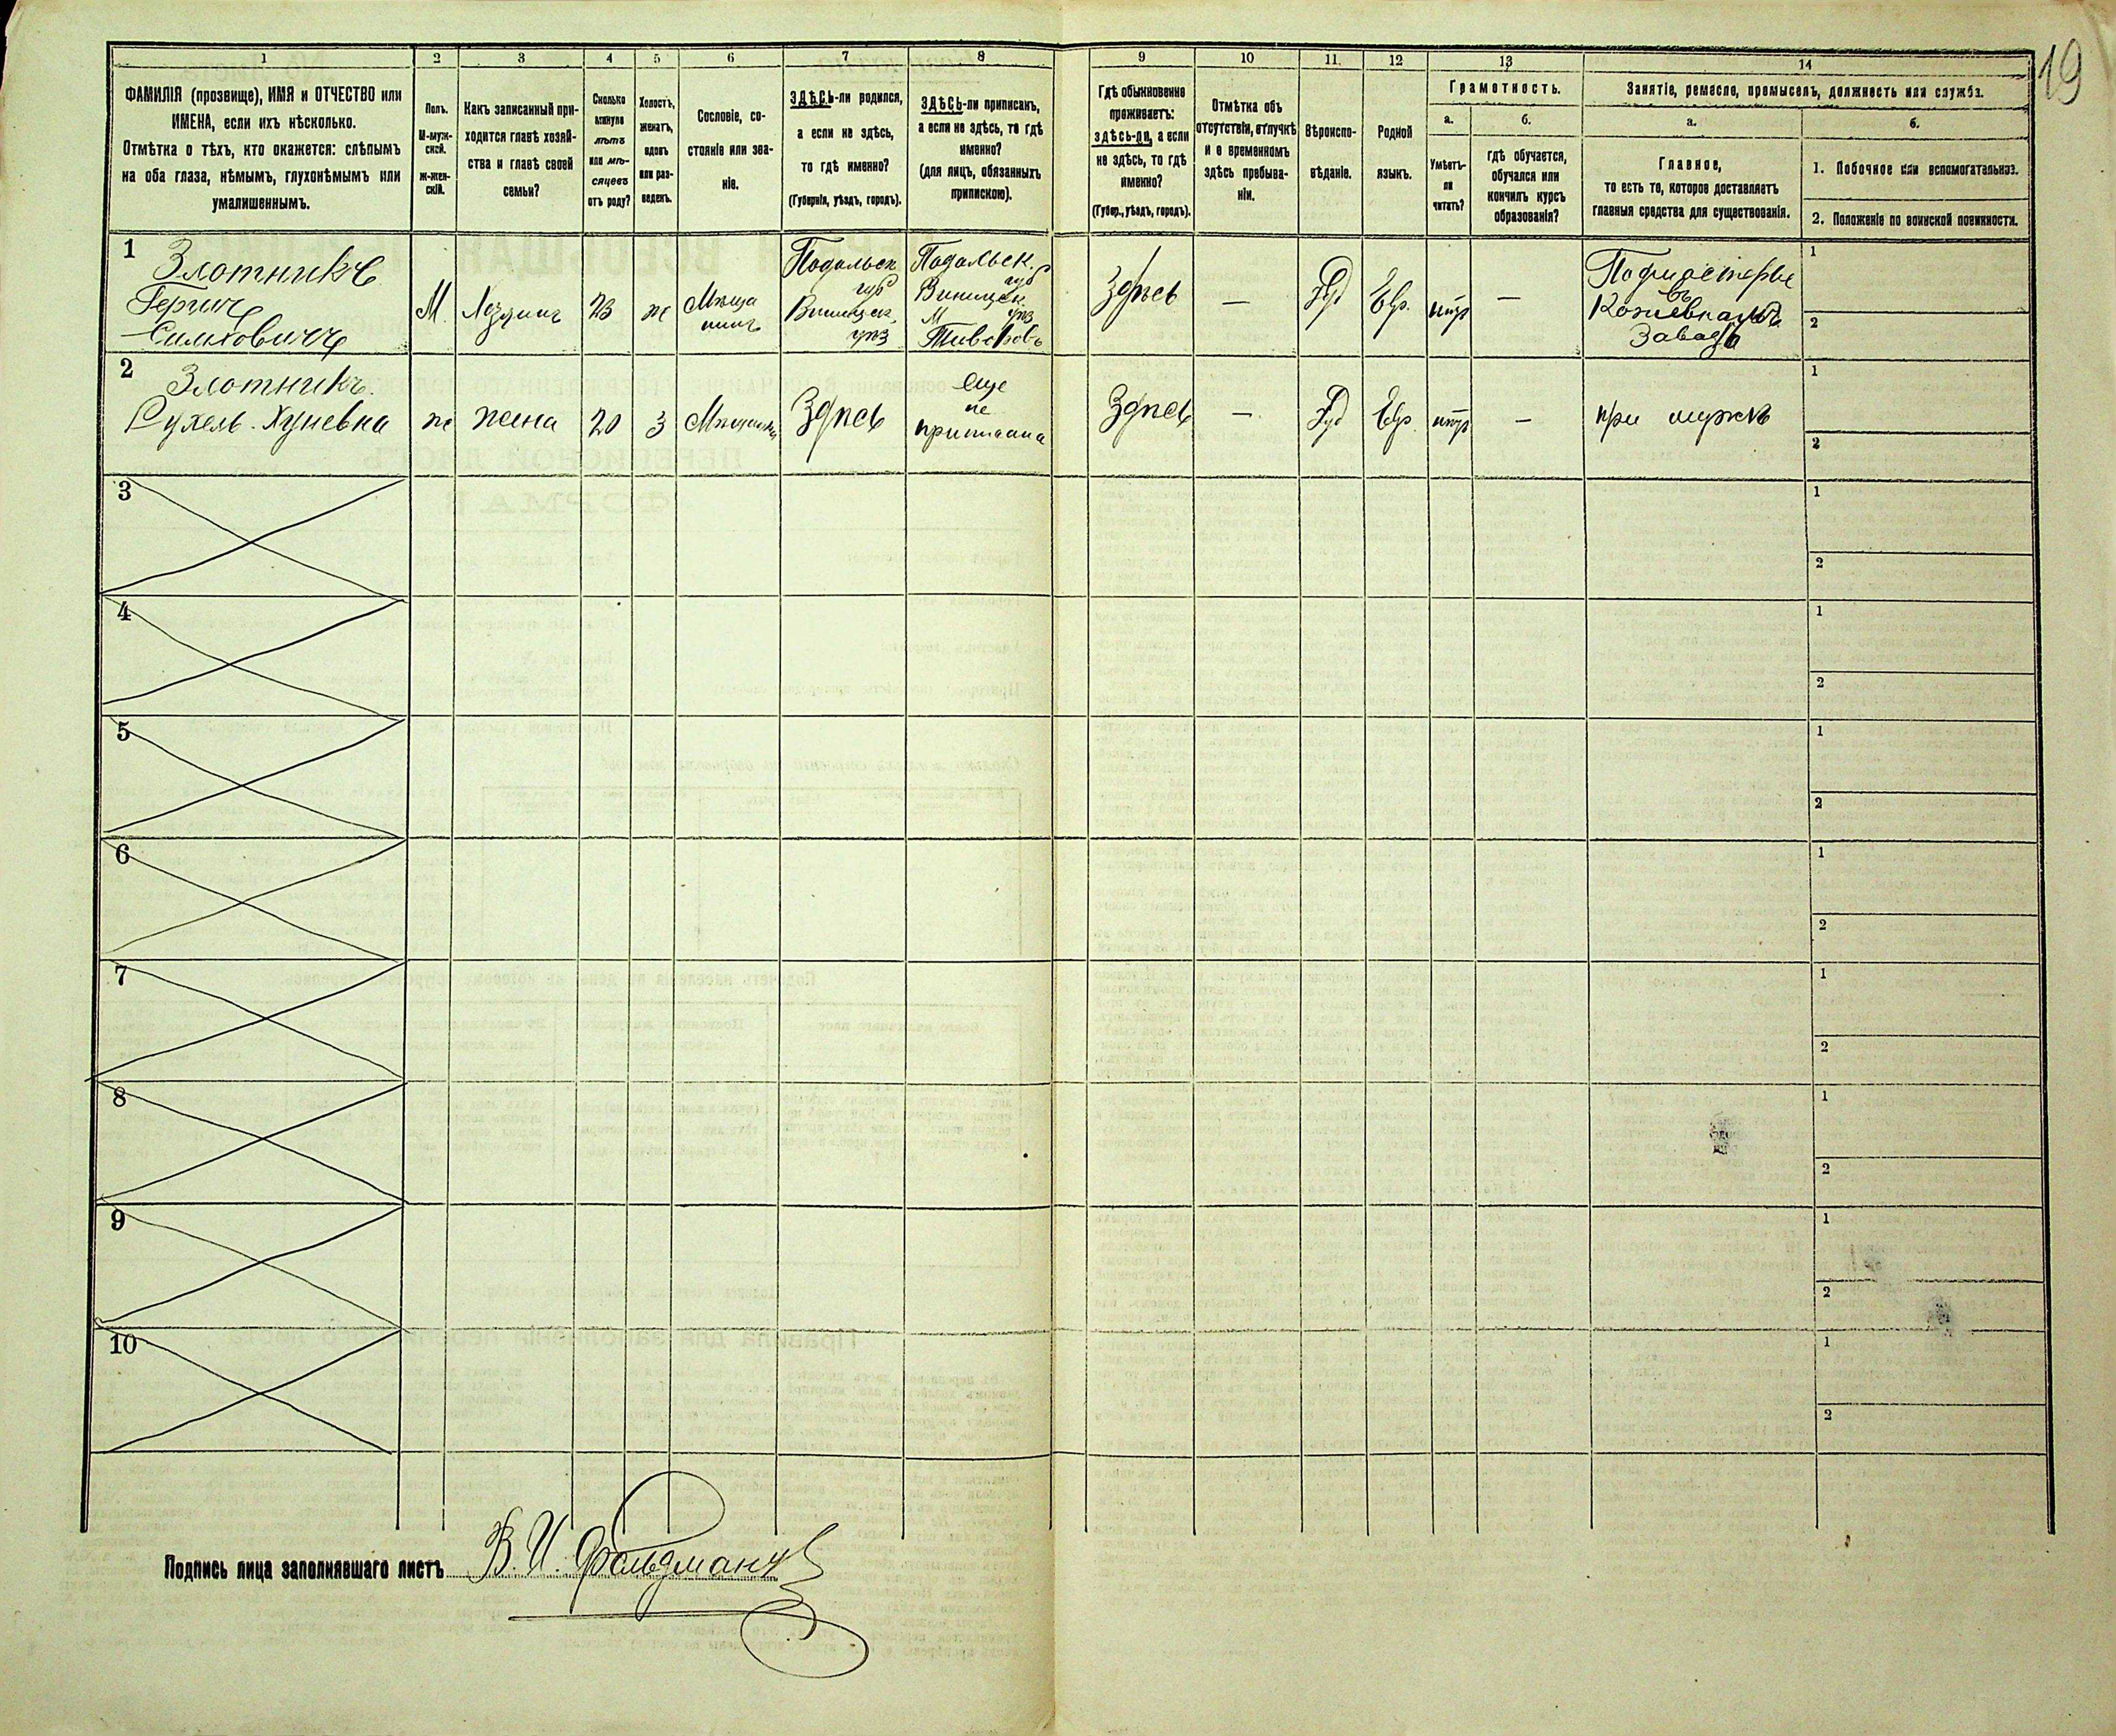 19
1 2 3 4 5 6 7 8 9 10 11. 12 13 14
ФАМИЛІЯ (прозвище), ИМЯ и ОТЧЕСТВО или
ИМЕНА, если ихъ нѣсколько.
Отмѣтка о тѣхъ, кто окажется: слѣпымъ
на оба глаза, нѣмымъ, глухонѣмымъ или
умалишеннымъ.
Полъ.
М-муж-
ской.
Ж-жен-
скій.
Какъ записанный при-
ходится главѣ хозяй-
ства и главѣ своей
семьи?
Сколько
минуло
лѣтъ
или мѣ-
сяцевъ
отъ роду?
Холостъ,
женатъ,
вдовъ
или раз-
веденъ.
Сословіе, со-
стояніе или зва-
ніе.
ЗДѢСЬ-ли родился,
а если не здѣсь,
то гдѣ именно?
(Губернія, уѣздъ, городъ).
ЗДѢСЬ-ли приписанъ,
а если не здѣсь, то гдѣ
именно?
(для лицъ, обязанныхъ
припискою).
Гдѣ обыкновенно
проживаетъ:
здѣсь-ли, а если
не здѣсь, то гдѣ
именно?
(Губер., уѣздъ, городъ).
Отмѣтка объ
отсутствіи, отлучкѣ
и о временномъ
здѣсь пребыва-
ніи.
Вѣроиспо-
вѣданіе.
Родной
языкъ.
Грамотность.
а.
Умѣетъ-
ли
читать?
б.
гдѣ обучается,
обучался или
кончилъ курсъ
образованія?
Занятіе, ремесло, промыселъ, должность или служба.
а.
Главное,
то есть то, которое доставляетъ
главныя средства для существованія.
б.
1. Побочное или вспомогательное.
2. Положеніе по воинской повинности.
1
Злотникъ
М. 23 ж Мѣща
нинъ
Подольск.
губ
Винницк.
уѣз
Подольск.
губ
Винницк.
уѣз
М Тивровъ
Здѣсь — Іуд Евр. нѣт —
въ
Завадѣ
1
2
2
Злотникъ.
ж жена 20 З Мѣщанка Здѣсь
еще
не
приписана
Здѣсь — Іуд Евр. нѣт — при мужѣ
1
2
3
1
2
4
1
2
5
1
2
6
1
2
7
1
2
8
1
2
9
1
2
10
1
2
Подпись лица заполнявшаго листъ В. И. Фельдманъ